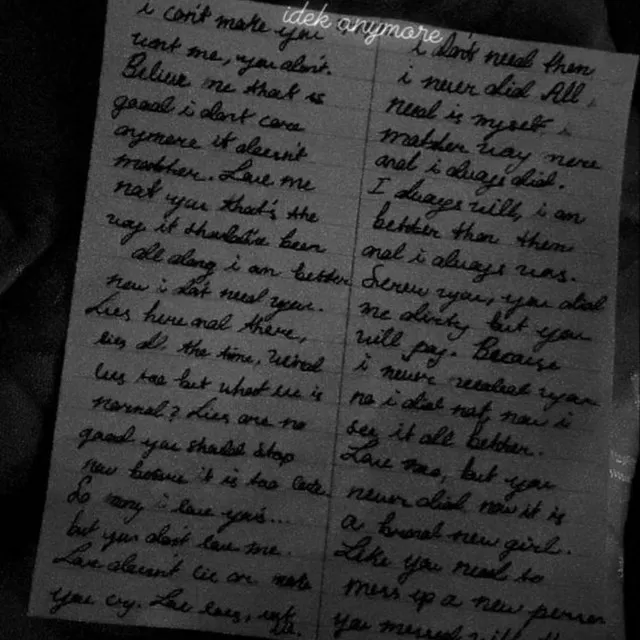 idek anymore
i can't make you
want me, you don't.
Believe me that is
good i dont care
anymore it doesn't
matter. Love me
not you that's the
way it should've been
all along i am better
now i dont need you.
Lies here and there,
lies all the time. Weird
lies too but what lie is
normal? Lies are no
good you should stop
now because it is too late.
So many i love you's...
but you don't love me.
Love doesn't lie or make
you cry. Love
i don't need them
i never did All i
need is myself i
matter way more
and i always did.
I always will, i am
better than them
and i always was.
Screw you, you did
me dirty but you
will pay. Because
i never needed you
no i did not now i
see it all better.
Love me, but you
never did now it is
a brand new girl.
Like you need to
mess up a new person
you messed with the